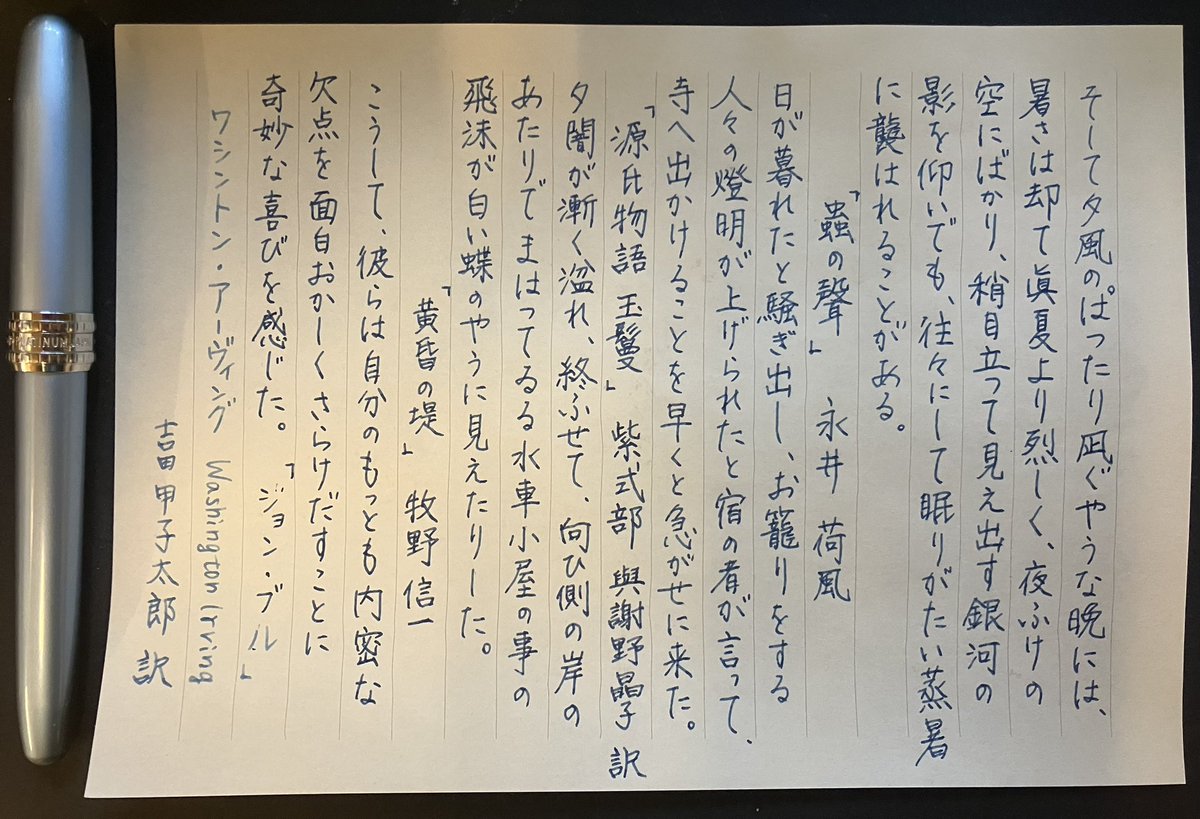 そして夕風のぱつたり凪ぐやうな晩には、
暑さは却て眞夏より烈しく、夜ふけの
空にばかり、稍目立つて見え出す銀河の
影を仰いでも、往々にして眠りがたい蒸暑
に襲はれることがある。
「蟲の聲」 永井 荷風
日が暮れたと騒ぎ出し、お籠りをする
人々の燈明が上げられたと宿の者が言って、
寺へ出かけることを早くと急がせに来た。
「源氏物語 玉鬘」 紫式部 與謝野晶子 訳
夕闇が漸く溢れ、終ふせて、向ひ側の岸の
あたりでまはつてゐる水車小屋の事の
飛沫が白い蝶のやうに見えたりした。
「黄昏の堤」 牧野 信一
こうして、彼らは自分のもっとも内密な
欠点を面白おかしくさらけだすことに
奇妙な喜びを感じた。 「ジョン・ブル」
ワシントン・アーヴィング Washington Irving
吉田 甲子太郎 訳
PLATINUM